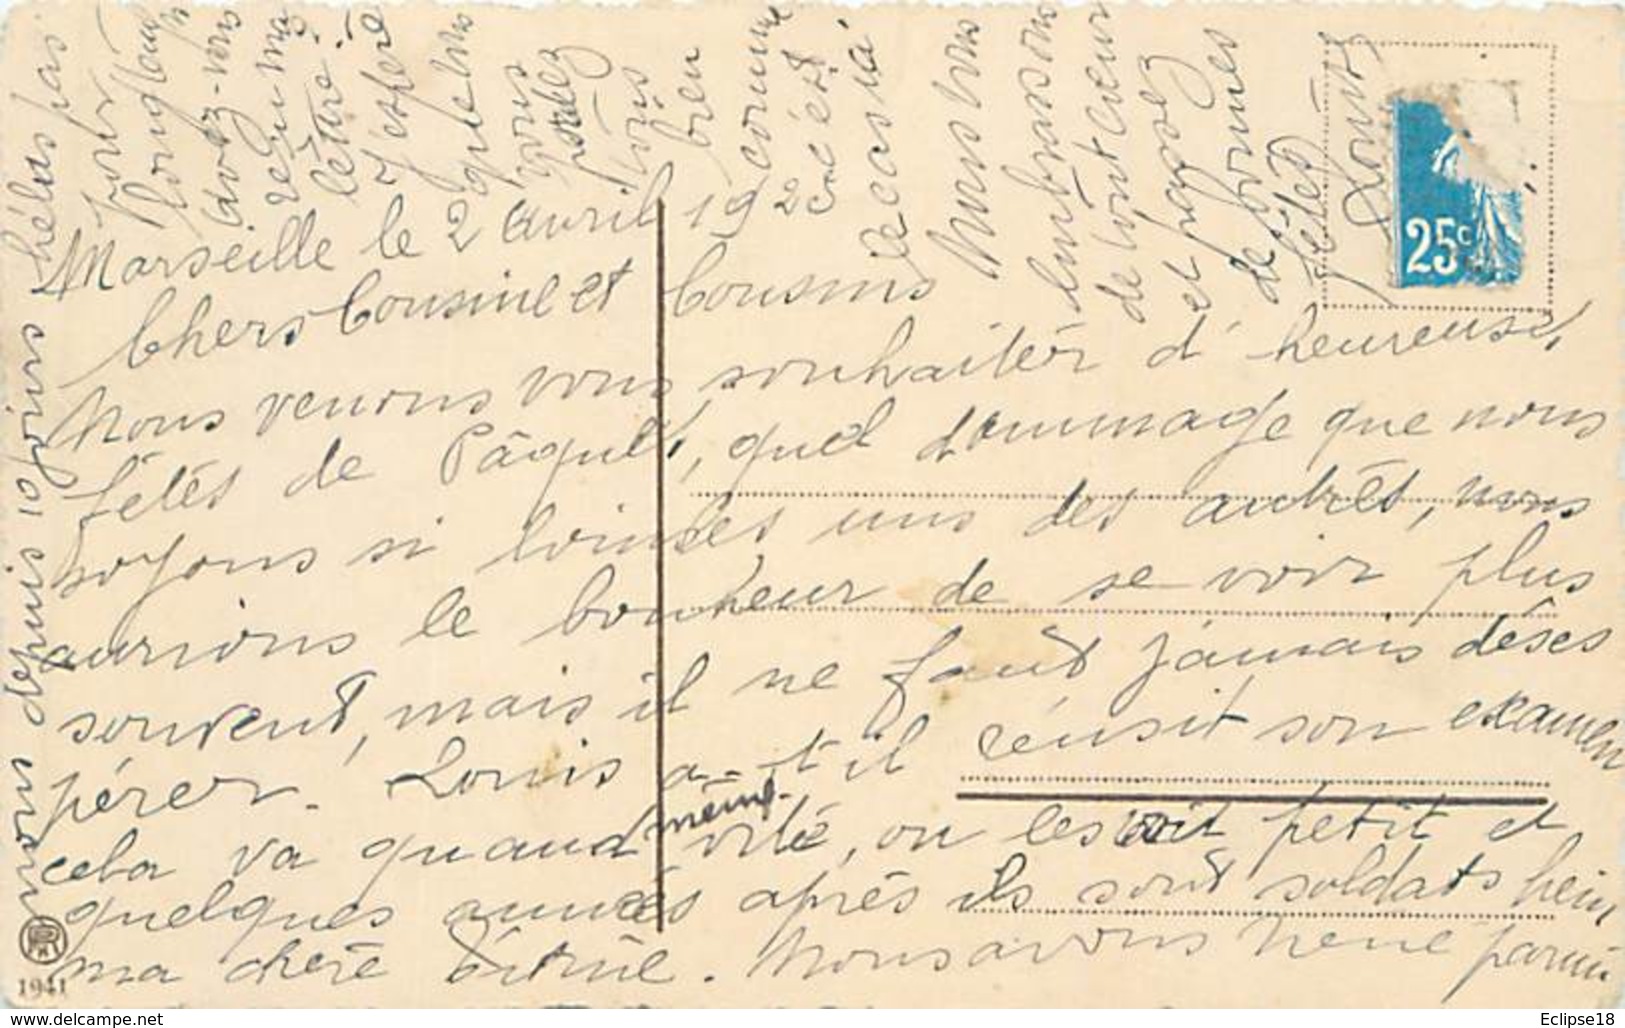 Marseille le 2 avril 192
Chers Cousine et Cousins
Nous venons vous souhaiter d'heureuses
fêtes de Pâques, quel dommage que nous
soyons si loin les uns des autres, nous
aurions le bonheur de se voir plus
souvent, mais il ne faut jamais déses
pérer. Louis a-t-il réussit son examen
cela va quand même vite, on les voit petit et
quelques années après ils sont soldats hein
ma chère . Nous avons René parmi
nous depuis 10 jours hélas pas
pour longtemps
avez-vous
reçu ma
lettre.
J'espère
que
vous
vous
tous
bien
comme
c'est
le cas ici
Nous vous
embrassons
de tout cœur
et passez
de bonnes
fêtes
25c
1941
Eclipse18
www.delcampe.net